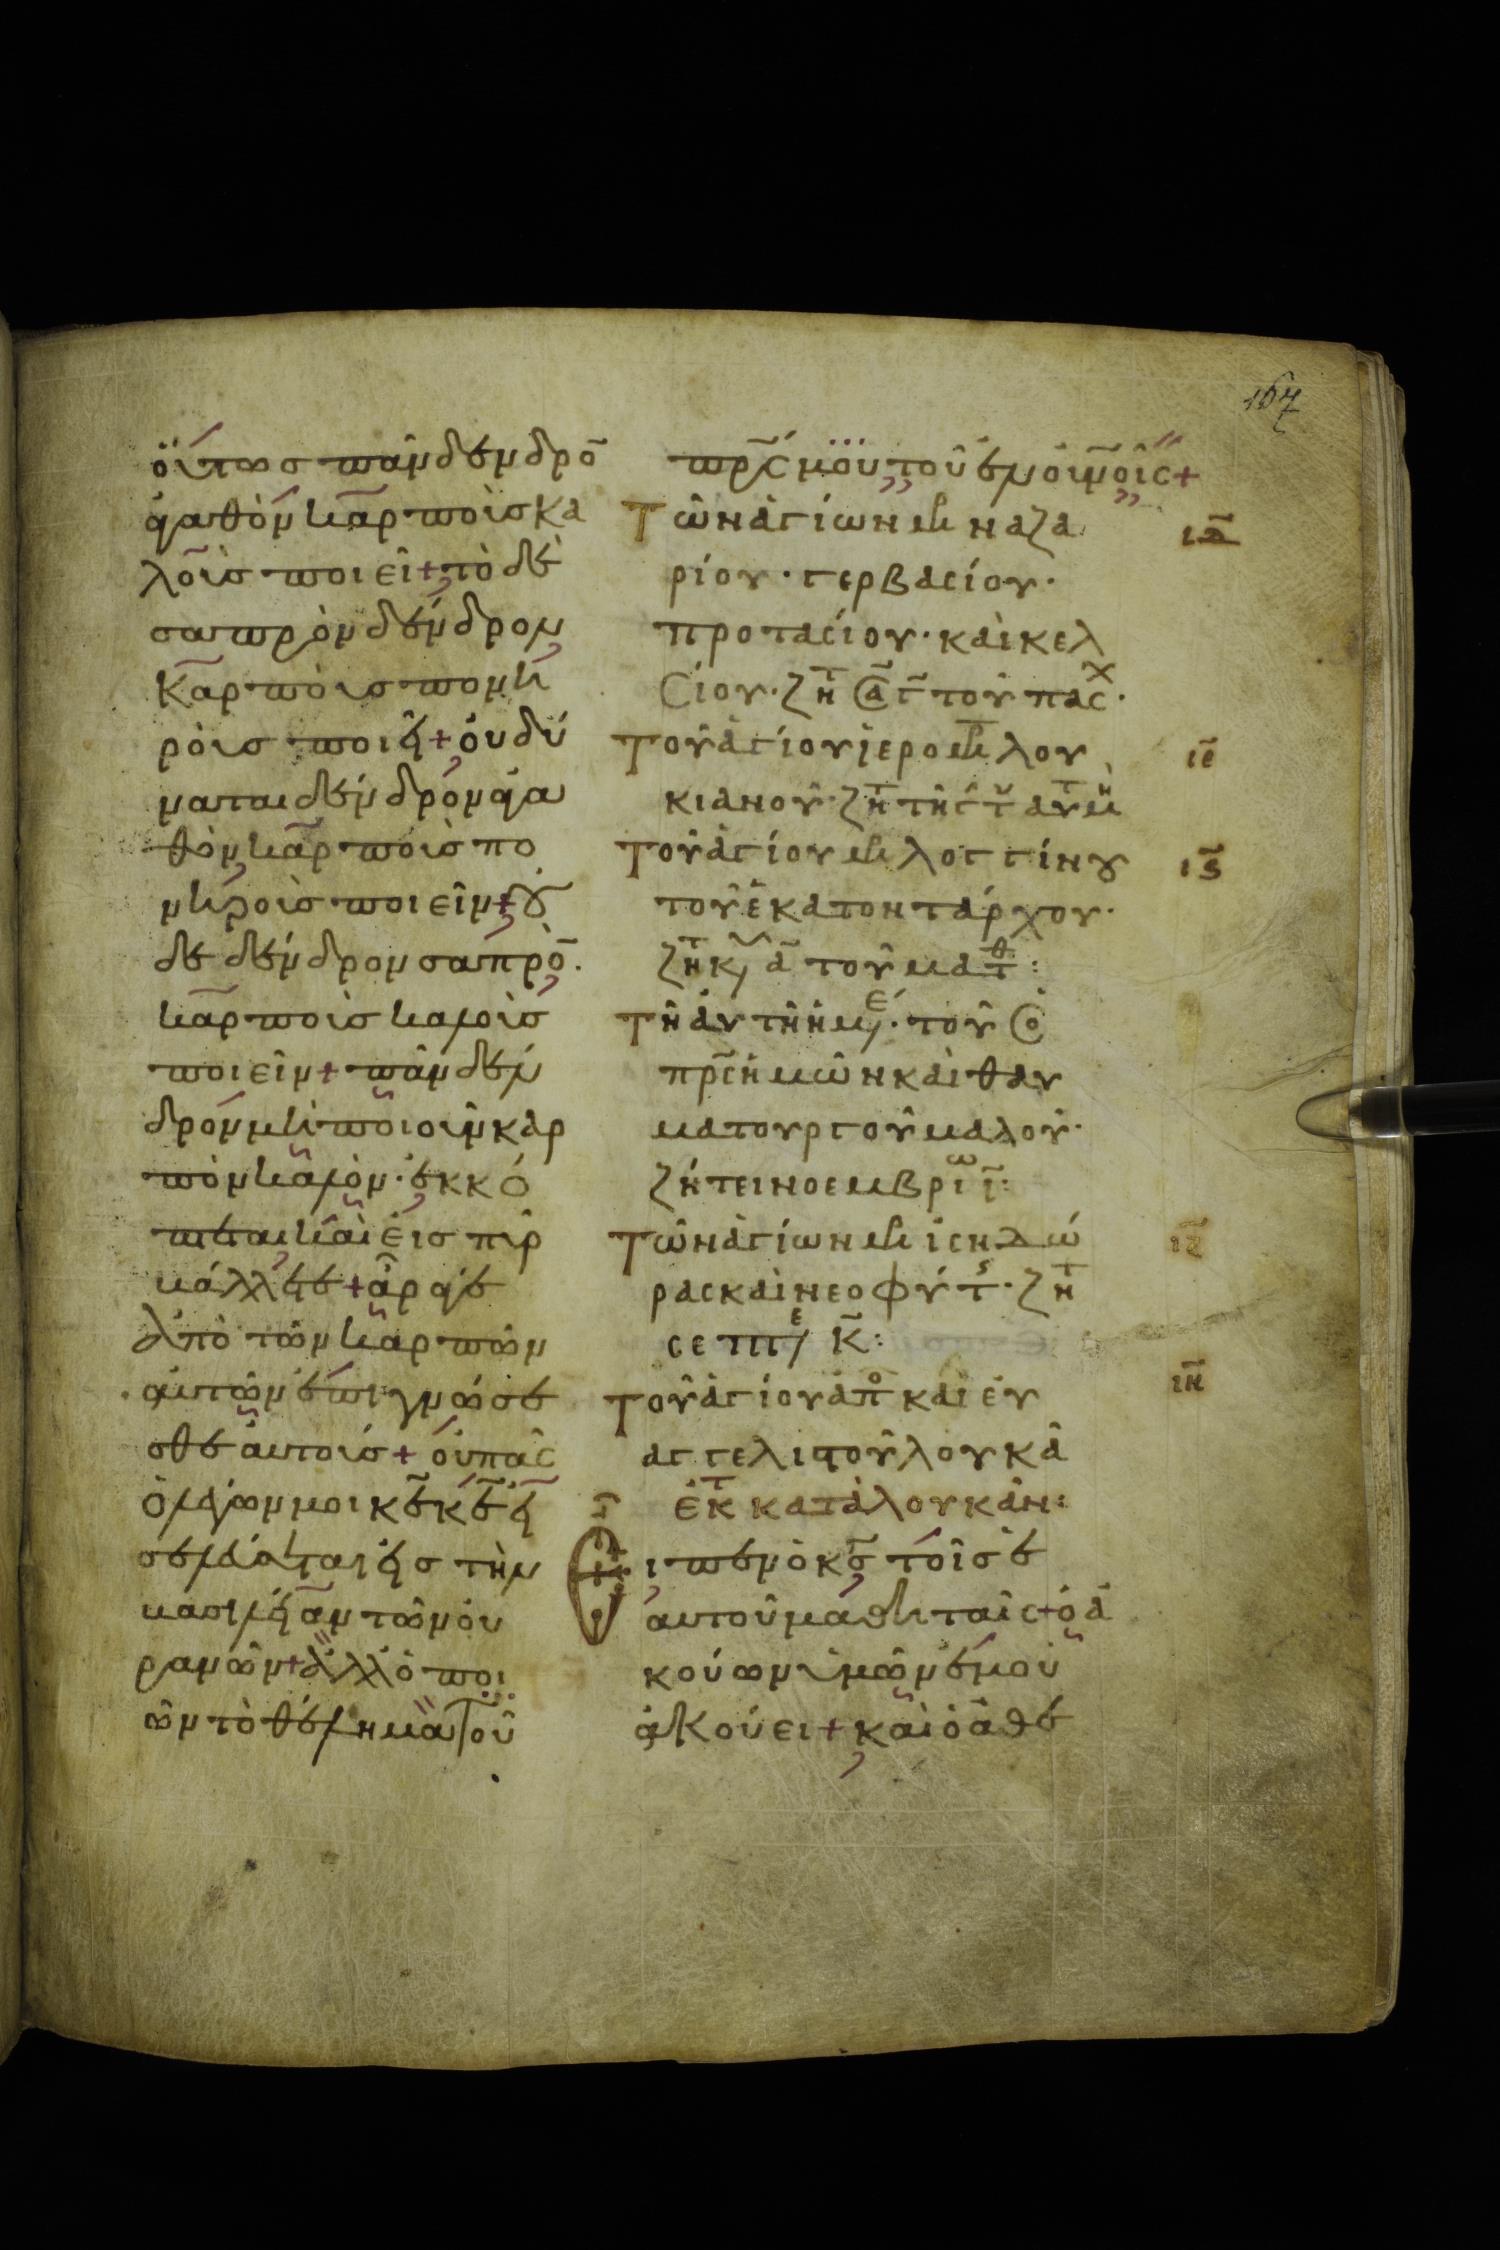 167
οὕτως πᾶν δένδρο̅
ἀγαθὸν καρποὺς κα
λοὺς ποιεῖ + τὸ δὲ
σαπρὸν δένδρον
καρποὺς πονη
ροὺς ποιεῖ + οὐ δύ
ναται δένδρον ἀγα
θὸν καρποὺς πο
νηροὺς ποιεῖν + οὐ
δὲ δένδρον σαπρὸ̅.
καρποὺς καλοὺς
ποιεῖν + πᾶν δέν
δρον μὴ ποιοῦν καρ
πὸν καλὸν· ἐκκό
πτεται καὶ εἰς πῦρ
βάλλεται + ἄραγε
ἀπὸ τῶν καρπῶν
αὐτῶν ἐπιγνώσε
σθε αὐτούς + οὐ πᾶς
ὁ λέγων μοι κ̅ε̅ κ̅ε̅ εἰ
σελεύσεται εἰς τὴν
βασιλείαν τῶν οὐ
ρανῶν + ἀλλ' ὁ ποι
ῶν τὸ θέλημα τοῦ
π̅ρ̅ς̅ μου τοῦ ἐν οὐνοῖς +
Τῶν ἁγίων μ ναζα
ρίου· γερβασίου·
προτασίου· καὶ κελ
σίου· ζητ α γ̅ τοῦ πασχ·
ιδ̅
Τοῦ ἁγίου ἱερομ λου
κιανοῦ· ζητ
ιε̅
Τοῦ ἁγίου μ λογγίνου
τοῦ ἑκατοντάρχου·
ιϛ̅
ζητ κυ α̅ τοῦ ματθ:
Τῇ αὐτῇ ἡμε· τοῦ ὁ
π̅ρ̅ς̅ ἡμῶν καὶ θαυ
ματουργοῦ μαλοῦ·
ζήτει νοεμβρίω ι̅:
Τῶν ἁγίων μ ἰσηδώ
ρας καὶ νεοφύτ· ζητ
ιζ̅
σεπτε κ̅:
Τοῦ ἁγίου ἀπο καὶ εὐ
αγγελιστοῦ λουκᾶ
ιη̅
ἐκ τ κατὰ λουκᾶν:
Εἶπεν ὁ κ̅ς̅ τοῖς ἑ
αυτοῦ μαθηταῖς + ὁ ἀ
κούων ὑμῶν ἐμοῦ
ἀκούει + καὶ ὁ ἀθε